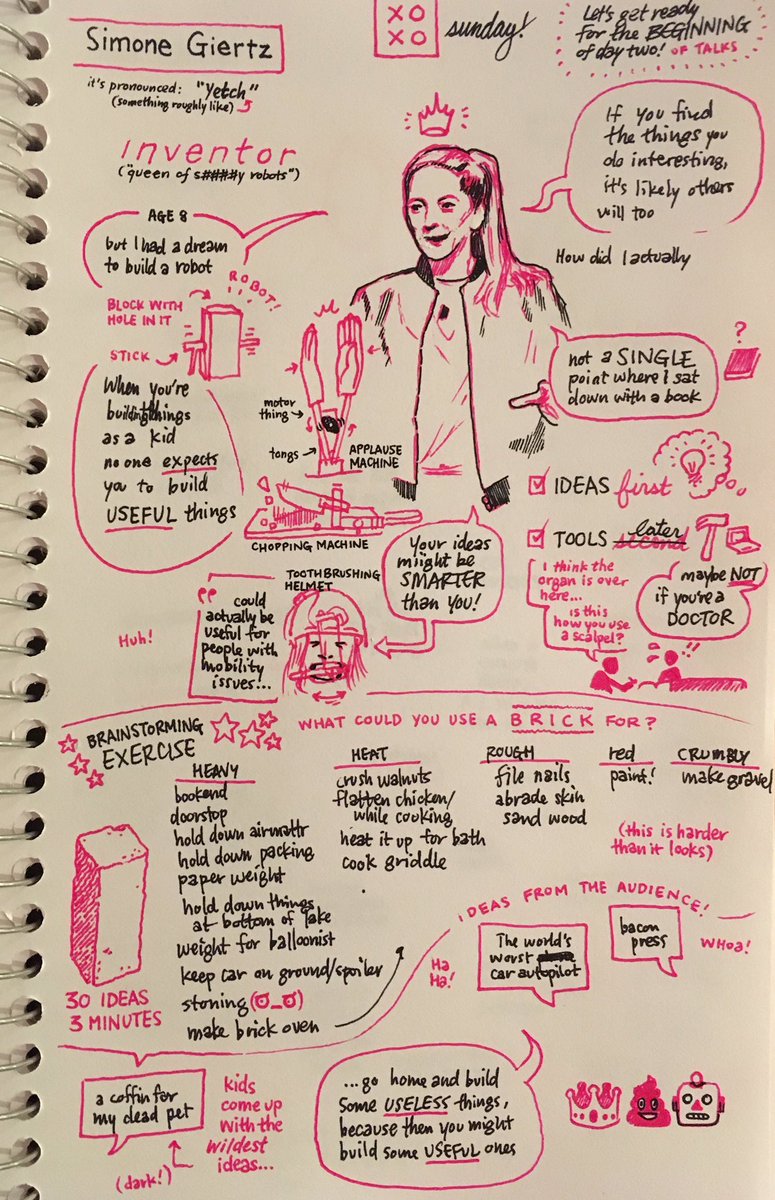 Simone Giertz
XO
XO
sunday!
Let's get ready
for the BEGINNING
of day two! OF TALKS
it's pronounced: "Yetch"
(something roughly like)
inventor
("queen of s####y robots")
If you find
the things you
do interesting,
it's likely others
will too
AGE 8
but I had a dream
to build a robot
How did I actually
ROBOT!
BLOCK WITH
HOLE IN IT
STICK
?
not a SINGLE
point where I sat
down with a book
When you're
building things
as a kid
no one expects
you to build
USEFUL things
motor
thing
tongs
APPLAUSE
MACHINE
CHOPPING MACHINE
IDEAS first
TOOLS second later
Your ideas
miight be
SMARTER
than you!
I think the
organ is over
here...
is this
how you use
a scalpel?
maybe NOT
if you're a
DOCTOR
?!
!!
TOOTHBRUSHING
HELMET
Huh!
"
could
actually be
useful for
people with
mobility
issues...
BRAINSTORMING
EXERCISE
WHAT COULD YOU USE A BRICK FOR?
HEAVY
bookend
doorstop
hold down airmattr
hold down packing
paper weight
hold down things
at bottom of lake
weight for balloonist
keep car on ground/spoiler
stoning (ಠ_ಠ)
make brick oven
HEAT
crush walnuts
flatten chicken/
while cooking
heat it up for bath
cook griddle
ROUGH
file nails
abrade skin
sand wood
red
paint!
CRUMBLY
make gravel
(this is harder
than it looks)
30 IDEAS
3 MINUTES
IDEAS FROM THE AUDIENCE!
Ha
Ha!
The world's
worst
car autopilot
bacon
press
WHOA!
a coffin for
my dead pet
(dark!)
kids
come up
with the
wildest
ideas...
...go home and build
some USELESS things,
because then you might
build some USEFUL ones